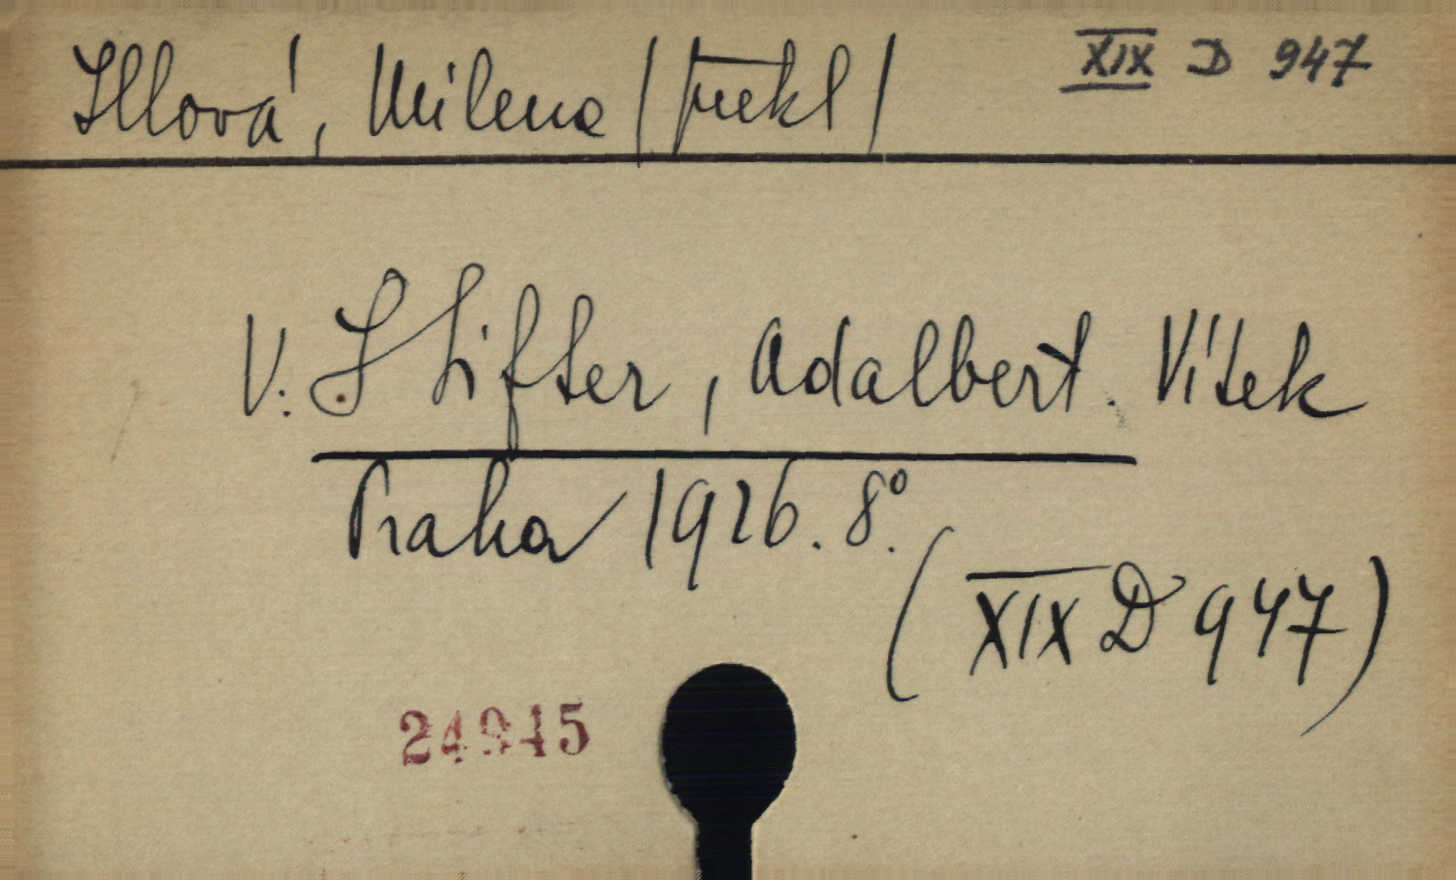 Illová, Milena /překl/ XIX D 947
V. Stifter, Adalbert. Vítek
Praha 1926. 8°.
(XIX D 947)
24945